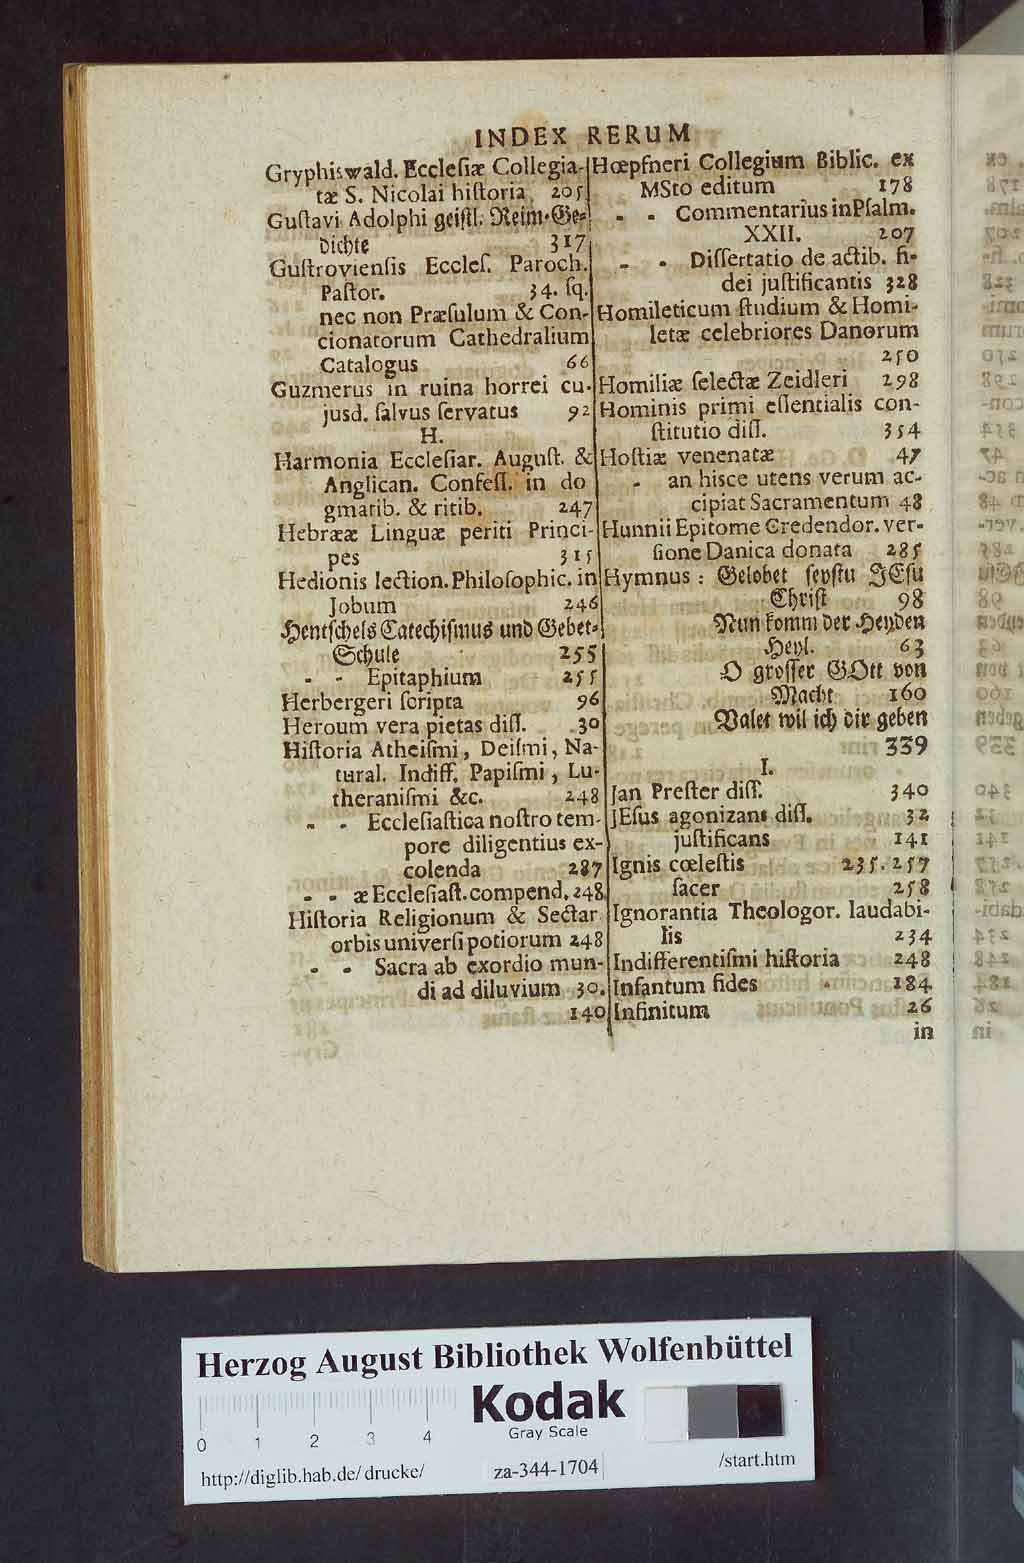 INDEX RERUM
Gryphiswald. Ecclesiæ Collegia-
tæ S. Nicolai historia 205
Gustavi Adolphi geistl. Reim-Ge-
dichte 317
Gustroviensis Eccles. Paroch.
Pastor. 34. sq.
nec non Præsulum & Con-
cionatorum Cathedralium
Catalogus 66
Guzmerus in ruina horrei cu-
jusd. salvus servatus 92
H.
Harmonia Ecclesiar. August. &
Anglican. Confess. in do
gmatib. & ritib. 247
Hebrææ Linguæ periti Princi-
pes 315
Hedionis lection. Philosophic. in
Jobum 246
Hentschels Catechismus und Gebet-
Schule 255
- - Epitaphium 255
Herbergeri scripta 96
Heroum vera pietas diss. 30
Historia Atheismi, Deismi, Na-
tural. Indiff. Papismi, Lu-
theranismi &c. 248
- - Ecclesiastica nostro tem-
pore diligentius ex-
colenda 287
- - æ Ecclesiast. compend. 248
Historia Religionum & Sectar
orbis universi potiorum 248
- - Sacra ab exordio mun-
di ad diluvium 30.
140
Hœpfneri Collegium Biblic. ex
MSto editum 178
- - Commentarius in Psalm.
XXII. 207
- - Dissertatio de actib. fi-
dei justificantis 328
Homileticum studium & Homi-
letæ celebriores Danorum
250
Homiliæ selectæ Zeidleri 298
Hominis primi essentialis con-
stitutio diss. 354
Hostiæ venenatæ 47
- an hisce utens verum ac-
cipiat Sacramentum 48
Hunnii Epitome Credendor. ver-
sione Danica donata 285
Hymnus: Gelobet seystu JEsu
Christ 98
Nun komm der Heyden
Heyl. 63
O grosser GOtt von
Macht 160
Valet wil ich dir geben
339
I.
Jan Prester diss. 340
JEsus agonizans diss. 32
justificans 141
Ignis cœlestis 235. 257
sacer 258
Ignorantia Theologor. laudabi-
lis 234
Indifferentismi historia 248
Infantum fides 184
Infinitum 26
in
Herzog August Bibliothek Wolfenbüttel
Kodak
Gray Scale
0 1 2 3 4
http://diglib.hab.de/drucke/ za-344-1704 /start.htm